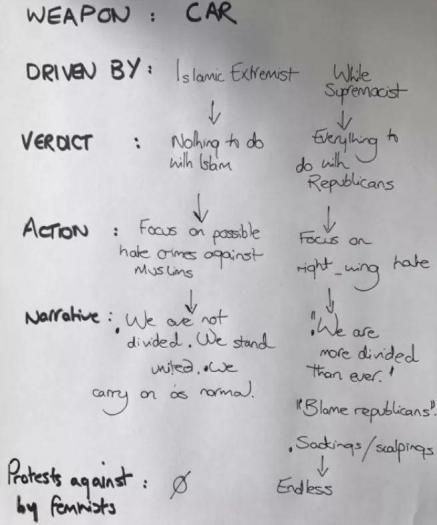 WEAPON : CAR
DRIVEN BY : Islamic Extremist
White
Supremacist
VERDICT : Nothing to do
with Islam
Everything to
do with
Republicans
ACTION : Focus on possible
hate crimes against
Muslims
Focus on
right_wing hate
Narrative : . We are not
divided. We stand
united. We
carry on as normal.
"We are
more divided
than ever."
"Blame republicans".
. Sackings/scalpings
Protests against : Ø
by feminists
Endless